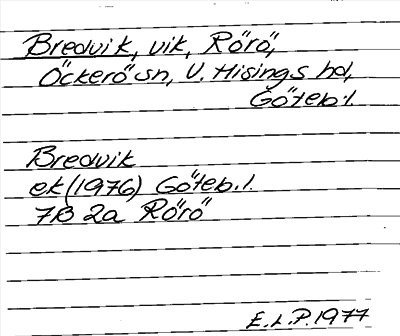 Bredvik, vik, Rörö,
Öckerö sn, V. Hisings hd,
Göteb. l.
Bredvik
ek (1976) Göteb. l.
7B 2a Rörö
E.L.P. 1977